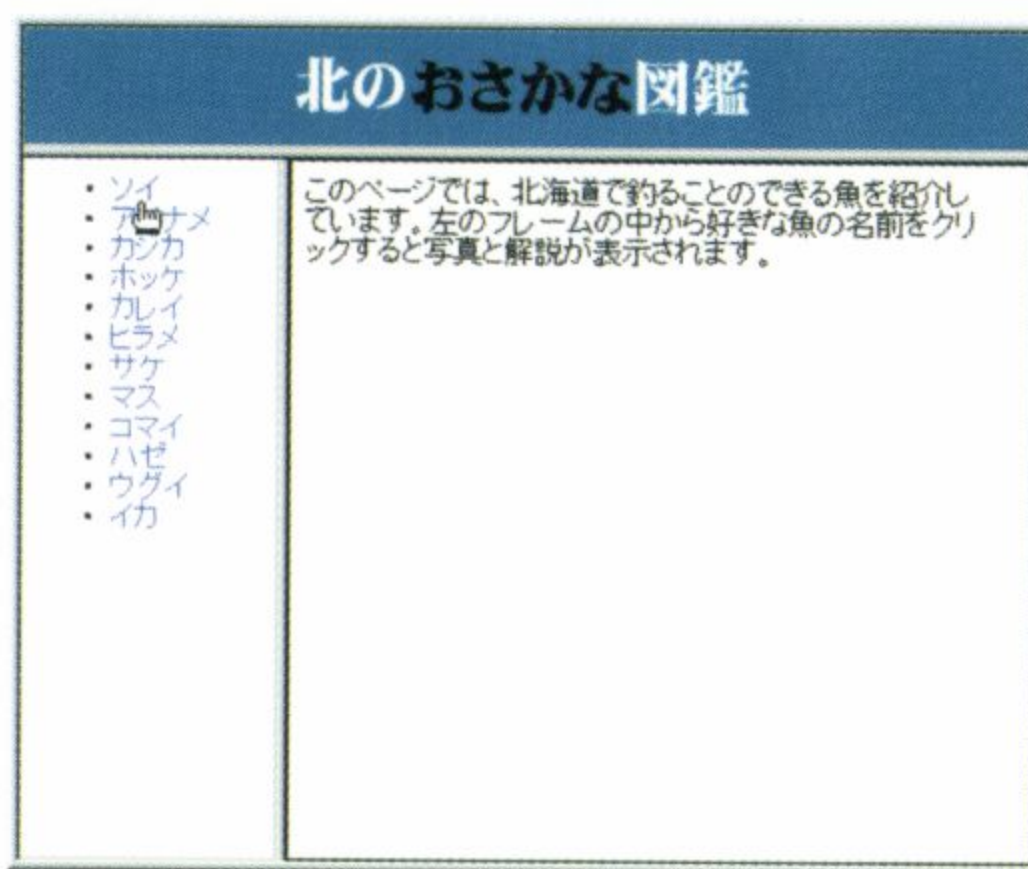 北のおさかな図鑑
・ソイ
・ア ナメ
・カジカ
・ホッケ
・カレイ
・ヒラメ
・サケ
・マス
・コマイ
・ハゼ
・ウグイ
・イカ
このページでは、北海道で釣ることのできる魚を紹介し
ています。左のフレームの中から好きな魚の名前をクリ
ックすると写真と解説が表示されます。